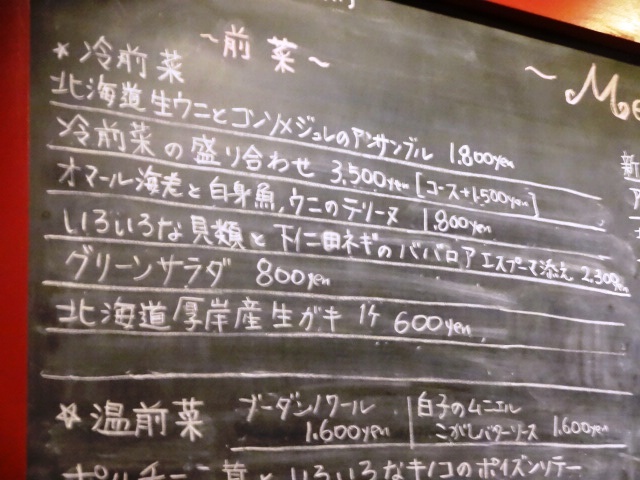 ～前菜～
★冷前菜
北海道生ウニとコンソメジュレのアンサンブル 1.800yen
冷前菜の盛り合わせ 3.500yen [コース+1.500yen]
オマール海老と白身魚,ウニのテリーヌ 1.800yen
いろいろな貝類と下仁田ネギのババロア エスプーマ添え 2.300yen
グリーンサラダ 800yen
北海道厚岸産生ガキ 1ケ 600yen
☆温前菜
ブーダンノワール
1.600yen
白子のムニエル
こがしバターソース 1.600yen
ポルチーニ茸といろいろなキノコのポイズンソテー
～Me
新